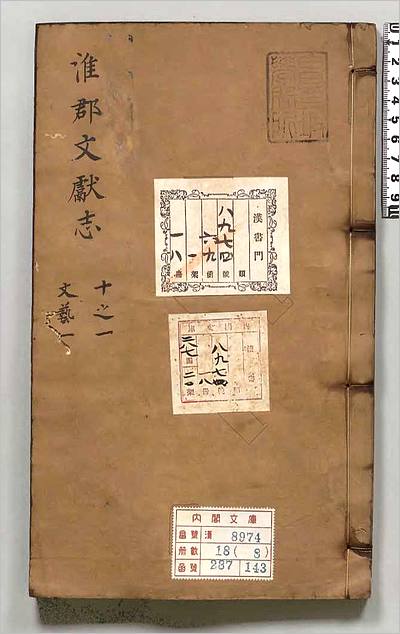 淮郡文獻志
十之一
文藝一
漢書門
八九七四
六九
一
一八
類
號
函
架
冊
八九七四
一八
二八七
二〇
內閣文庫
番號 漢 8974
冊數 18(8)
函號 287 143
0 1 2 3 4 5 6 7 8 9 10